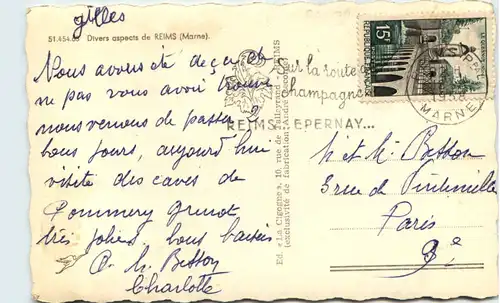 gilles
51.454.05 Divers aspects de REIMS (Marne).
Nous avons été déçus et
ne pas vous avoir trouvé
nous venons de passer
bons jours, aujourd'hui
visité des caves de
Pommery
très jolies bons baisers
Charlotte
Ed. « La Cigogne », 10, rue de Talleyrand - REIMS
(exclusivité de fabrication André Leconte)
Sur la route
champagne
REIMS-EPERNAY...
15F
REPUBLIQUE FRANCAISE
MARNE
M et M. Besson
3 rue de
Paris
9e